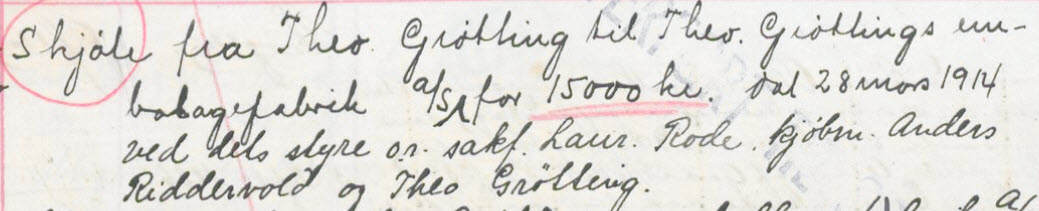 Skjöte fra Theo. Grötting til Theo. Gröttings em-
balagefabrik a/s for 15000 kr. dat 28 mars 1914
ved dets styre o.r. sakf. Laur. Rode, kjöbm. Anders
Riddervold og Theo Gröttting.